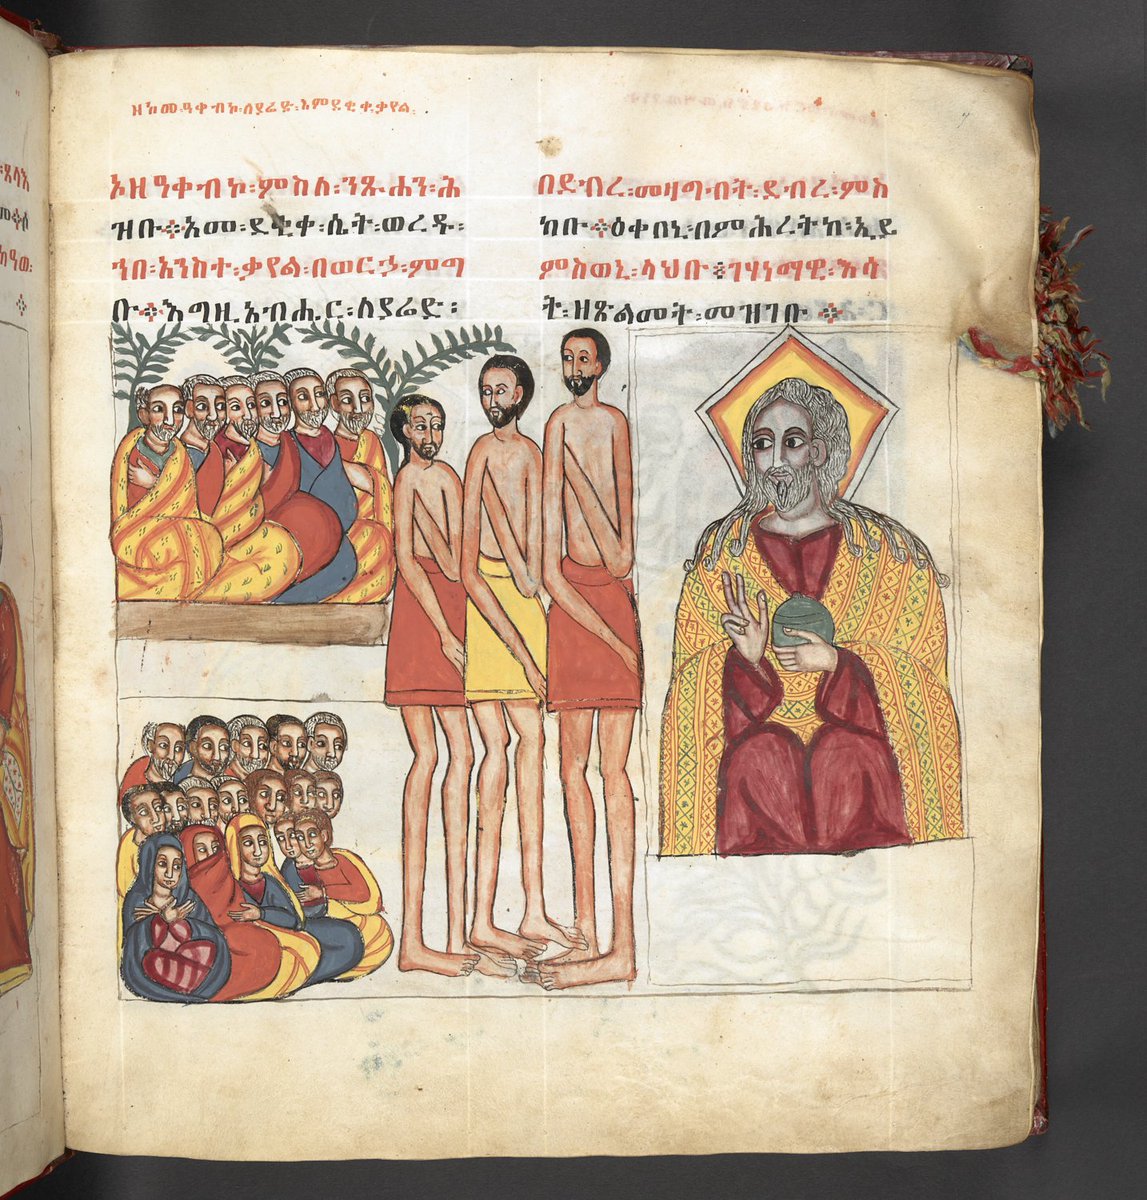 ዘከመ፡ዓቀብኮ፡ለያሬድ፡እምደቂቀ፡ቃየል፡
ኦዘዓቀብኮ፡ምስለ፡ንጹሐን፡ሕ
ዝቡ፨አመ፡ደቂቀ፡ሴት፡ወረዱ፡
ኀበ፡አንስተ፡ቃየል፡በወርኃ፡ምግ
ቡ፨እግዚአብሔር፡ለያሬድ፡
በደብረ፡መዛግብት፡ደብረ፡ምስ
ካቡ፨ዕቀበኒ፡በምሕረትከ፡ኢይ
ምስወኒ፡ላህቡ፨ገሃነማዊ፡እሳ
ት፡ዘጽልመት፡መዝገቡ፨